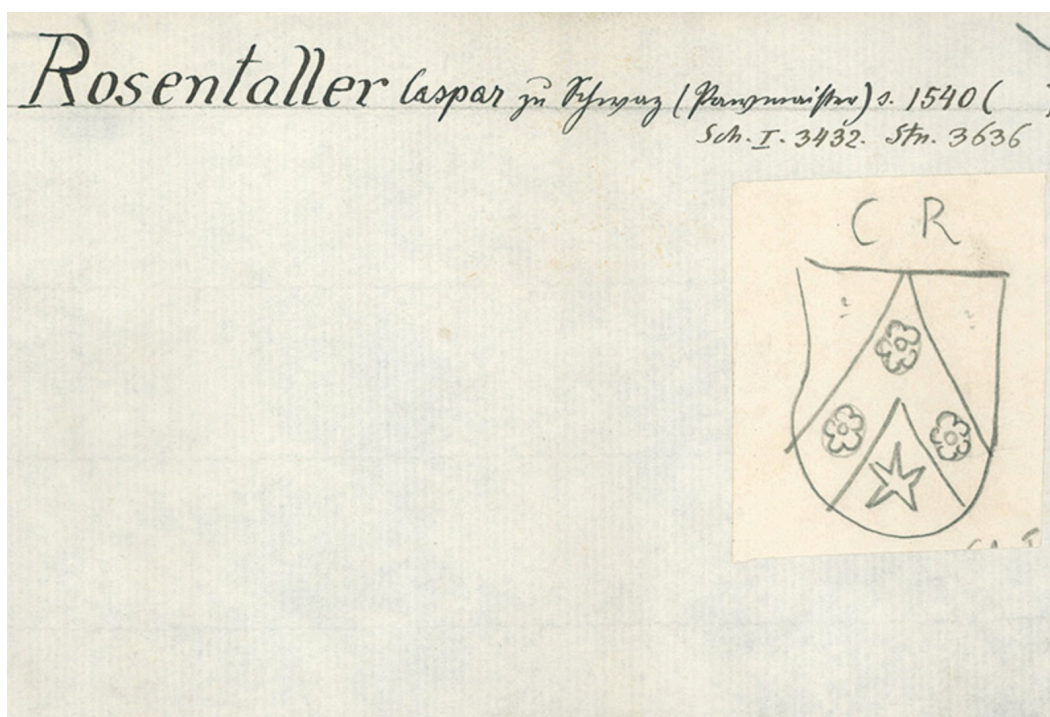 Rosentaller Caspar zu Schwaz (Pawmaister) s. 1540 ( )
Sch. I. 3432. Stn. 3636
C R